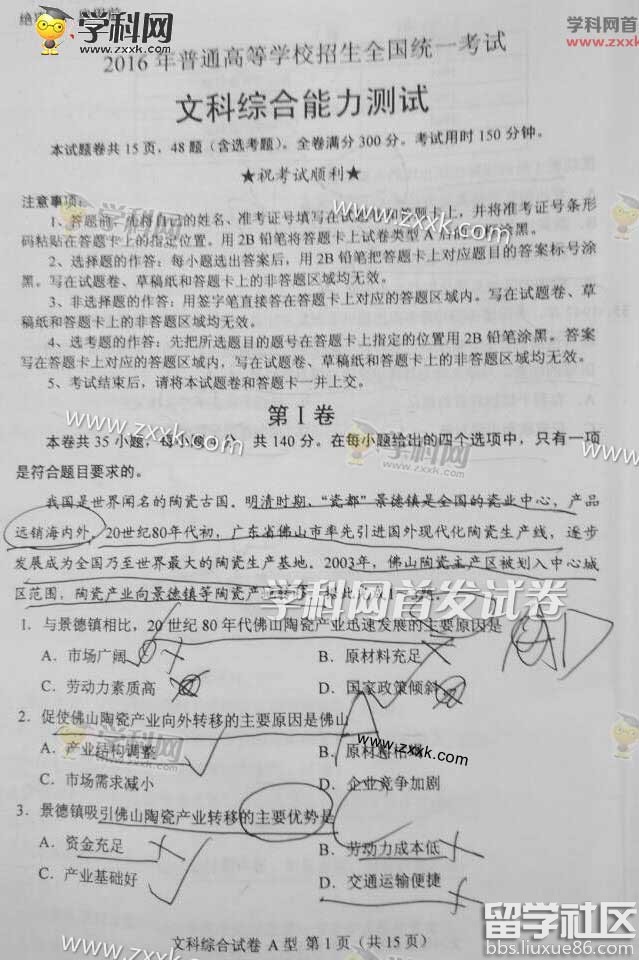 绝
学科网
www.zxxk.com
学科网
www.zxxk.com
2016 年普通高等学校招生全国统一考试
文科综合能力测试
本试题卷共 15 页，48 题（含选考题）。全卷满分 300 分。考试用时 150 分钟。
★祝考试顺利★
注意事项：
1、答题前，先将自己的姓名、准考证号填写在试题卷和答题卡上，并将准考证号条形
码粘贴在答题卡上的指定位置。用 2B 铅笔将答题卡上试卷类型 A 后的方框涂黑。
2、选择题的作答：每小题选出答案后，用 2B 铅笔把答题卡上对应题目的答案标号涂
黑。写在试题卷、草稿纸和答题卡上的非答题区域均无效。
3、非选择题的作答：用签字笔直接答在答题卡上对应的答题区域内。写在试题卷、草
稿纸和答题卡上的非答题区域均无效。
4、选考题的作答：先把所选题目的题号在答题卡上指定的位置用 2B 铅笔涂黑。答案
写在答题卡上对应的答题区域内，写在试题卷、草稿纸和答题卡上的非答题区域均无效。
5、考试结束后，请将本试题卷和答题卡一并上交。
第 I 卷
本卷共 35 小题，每小题 分，共 140 分。在每小题给出的四个选项中，只有一项
是符合题目要求的。
我国是世界闻名的陶瓷古国。明清时期，“瓷都”景德镇是全国的瓷业中心，产品
远销海内外。20世纪80年代初，广东省佛山市率先引进国外现代化陶瓷生产线，逐步
发展成为全国乃至世界最大的陶瓷生产基地。2003年，佛山陶瓷主产区被划入中心城
区范围，陶瓷产业向景德镇等陶瓷产地转移。据此完成1～3题。
学科网首发试卷
1．与景德镇相比，20 世纪 80 年代佛山陶瓷产业迅速发展的主要原因是
A．市场广阔 B．原材料充足
C．劳动力素质高 D．国家政策倾斜
2．促使佛山陶瓷产业向外转移的主要原因是佛山
A．产业结构调整 B．原材料枯
C．市场需求减小 D．企业竞争加剧
3．景德镇吸引佛山陶瓷产业转移的主要优势是
A．资金充足 B．劳动力成本低
C．产业基础好 D．交通运输便捷
文科综合试卷 A 型 第 1 页（共 15 页）
学科网
www.zxxk.com
www.zxxk.com
www.zxxk.com
学科网
zxxk.com
学科网
zxxk.com
www.zxxk.com
www.zxxk.com
留学社区
bbs.liuxue86.com